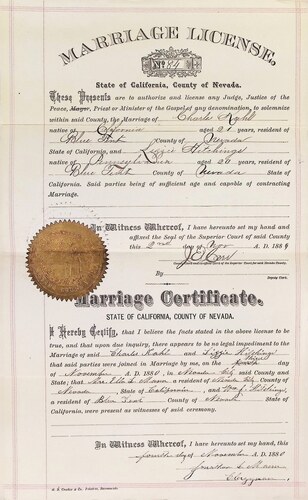 MARRIAGE LICENSE,
No. 84
State of California, County of Nevada.
These Presents are to authorize and license any Judge, Justice of the
Peace, Mayor, Priest or Minister of the Gospel of any denomination, to solemnize
within said county, the Marriage of Charles Kahl
native of California aged 21 years, resident of
Blue Tent County of Nevada
State of California, and Lizzie Hitchings
native of Pennsylvania aged 20 years, resident of
Blue Tent County of Nevada State of
California. Said parties being of sufficient age and capable of contracting
Marriage.
In Witness Whereof, I have hereunto set my hand and
affixed the Seal of the Superior Court of said County
this 2nd day of Nov A.D. 188
By
Deputy Clerk.
Marriage Certificate.
STATE OF CALIFORNIA, COUNTY OF NEVADA.
I Hereby Certify, that I believe the facts stated in the above license to be
true, and that upon due inquiry, there appears to be no legal impediment to the
Marriage of said Charles Kahl and Lizzie Hitchings
that said parties were joined in Marriage by me, on the Fourth day
of November A.D. 1880, in Nevada City, said County and
State; that Mrs. a resident of Nevada City County of
Nevada, State of California, and Wm.
a resident of Blue Tent County of Nevada State of
California, were present as witnesses of said ceremony.
In Witness Whereof, I have hereunto set my hand, this
fourth day of November A.D. 1880
Clergyman